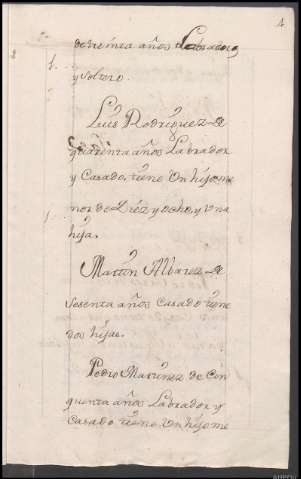 4
de treinta años Labrador
1. y soltero.
Luis Rodriguez de
quarenta años Labrador
y Casado, tiene Un hijo me
1. nor de Diez y ocho, y Una
hija.
Martin Albarez de
Sesenta años Casado tiene
dos hijas.
Pedro Martinez de Cin
quenta años Labrador y
Casado tiene Un hijo me